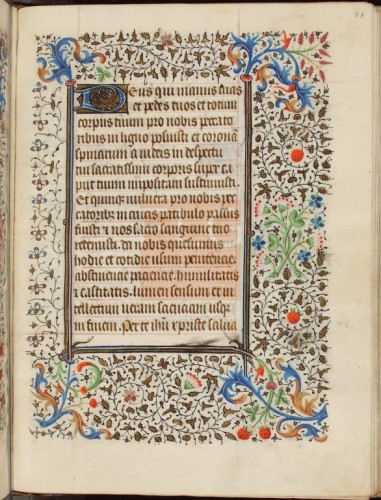 Deus qui manus tuas
et pedes tuos et totum
corpus tuum pro nobis peccato
ribus in ligno posuisti et coronā
spinarum a iudeis in despectu
tui sacratissimi corporis super ca
put tuum impositam sustinuisti
Et quinqз vulnera pro nobis pec
catoribз in crucis patibulo passus
fuisti et nos sacro sanguine tuo
redemisti. da nobis quesumus
hodie et cotidie usum penitencie.
abstinencie. paciencie. humilitatis
et castitatis. lumen sensum et in
tellectum veram scienciam usqз
in finem. Per te ihū xpriste salua